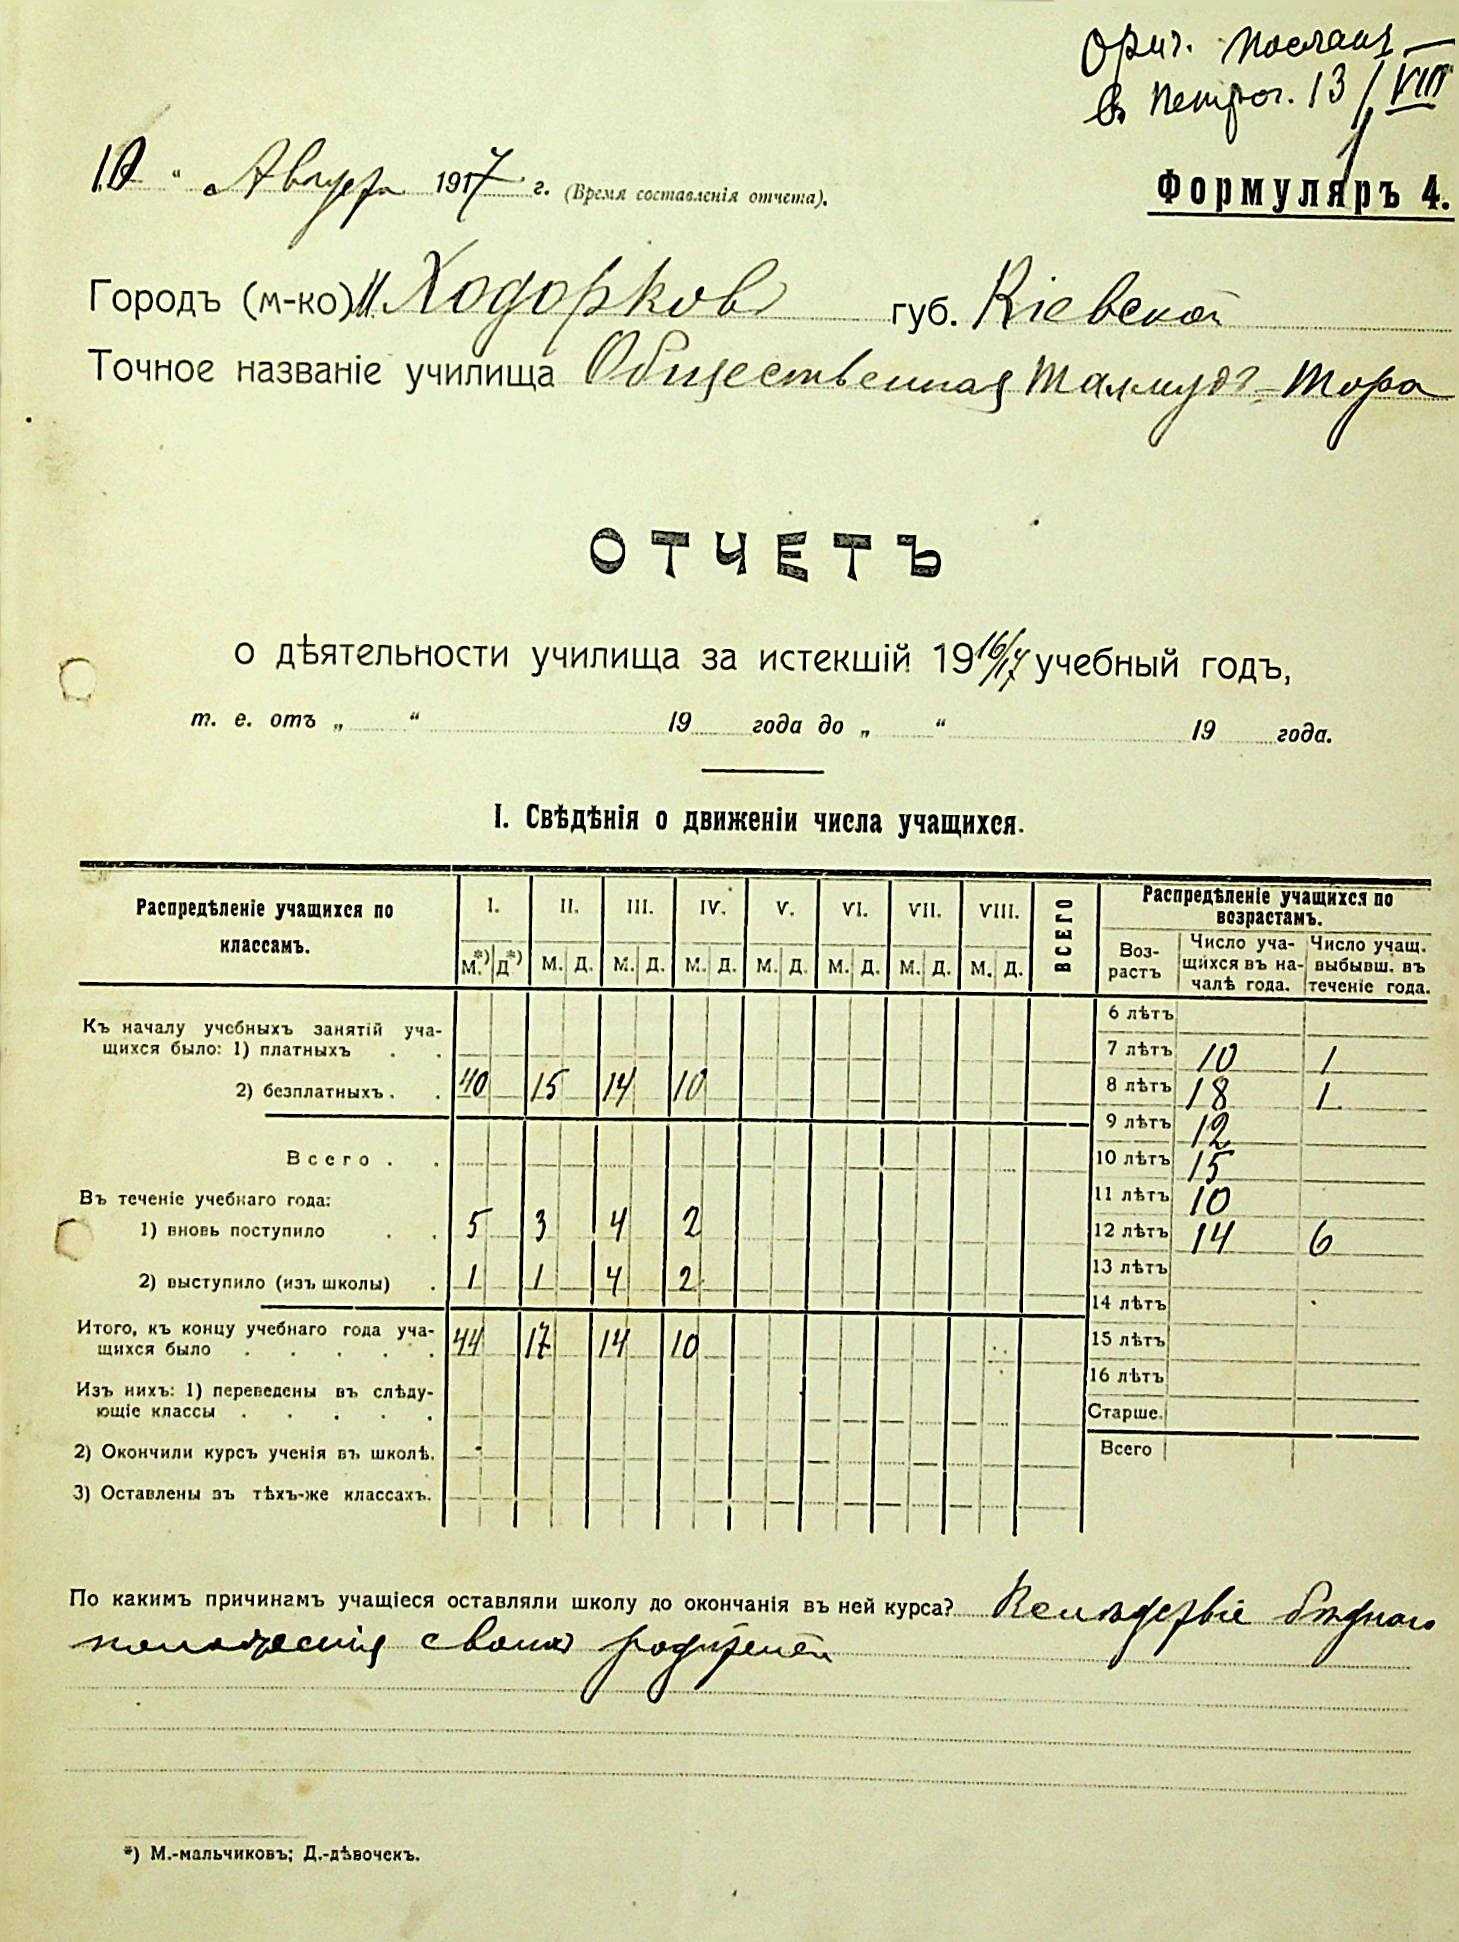 Ориг. послан
в Петрог. 13/VIII
10 " Августа 1917 г. (Время составленія отчета).
Формуляръ 4.
Городъ (м-ко) м. Ходорков губ. Кіевской
Точное названіе училища Общественная Талмудъ-Тора
ОТЧЕТЪ
о дѣятельности училища за истекшій 1916/17 учебный годъ,
т. е. отъ „ “ 19 года до „ “ 19 года.
I. Свѣдѣнія о движеніи числа учащихся.
Распредѣленіе учащихся по классамъ. I. II. III. IV. V. VI. VII. VIII. ВСЕГО
М.*) Д*) М. Д. М. Д. М. Д. М. Д. М. Д. М. Д. М. Д.
Къ началу учебныхъ занятій уча-
щихся было: 1) платныхъ . .
2) безплатныхъ . . 40 15 14 10
Всего . .
Въ теченіе учебнаго года:
1) вновь поступило . . 5 3 4 2
2) выступило (изъ школы) . 1 1 4 2
Итого, къ концу учебнаго года уча-
щихся было . . . . . 44 17 14 10
Изъ нихъ: 1) переведены въ слѣду-
ющіе классы . . . . .
2) Окончили курсъ ученія въ школѣ.
3) Оставлены въ тѣхъ-же классахъ.
Распредѣленіе учащихся по
возрастамъ.
Воз-
растъ
Число уча-
щихся въ на-
чалѣ года.
Число учащ.
выбывш. въ
теченіе года.
6 лѣтъ
7 лѣтъ 10 1
8 лѣтъ 18 1.
9 лѣтъ 12
10 лѣтъ 15
11 лѣтъ 10
12 лѣтъ 14 6
13 лѣтъ
14 лѣтъ
15 лѣтъ
16 лѣтъ
Старше.
Всего
По какимъ причинамъ учащіеся оставляли школу до окончанія въ ней курса? Вслѣдствіе бѣдного
положенія своих родителей
*) М.-мальчиковъ; Д.-дѣвочекъ.